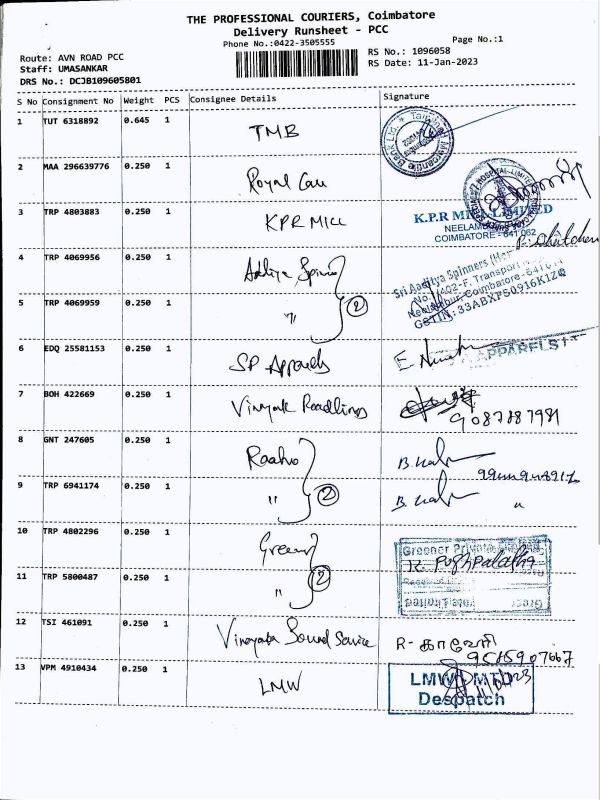 THE PROFESSIONAL COURIERS, Coimbatore
Delivery Runsheet - PCC
Phone No.:0422-3505555
Page No.:1
Route: AVN ROAD PCC
RS No.: 1096058
Staff: UMASANKAR
RS Date: 11-Jan-2023
DRS No.: DCJB109605801
S No Consignment No Weight PCS Consignee Details Signature
1 TUT 6318892 0.645 1 TMB
2 MAA 296639776 0.250 1 Royal Care
3 TRP 4803883 0.250 1 KPR MILL
K.P.R MILL LIMITED
NEELAMBUR
COIMBATORE - 641 062
4 TRP 4069956 0.250 1 Aditya Spinn
Sri Aaditya Spinners
Transport
Neelambur, Coimbatore-641
GSTIN:33ABXFS0916K1ZQ
5 TRP 4069959 0.250 1 " 2
6 EDQ 25581153 0.250 1 SP Apparels
APPARELS
7 BOH 422669 0.250 1 Vinayak Roadlings
9087887981
8 GNT 247605 0.250 1 Raaho
9 TRP 6941174 0.250 1 " 2
10 TRP 4802296 0.250 1 Green
Greener Private Limited
R. Pushpalatha
11 TRP 5800487 0.250 1 " 2
12 TSI 461091 0.250 1 Vinayaka Sound Service R- காவேரி
9585907667
13 VPM 4910434 0.250 1 LMW
LMW LMTD
Despatch